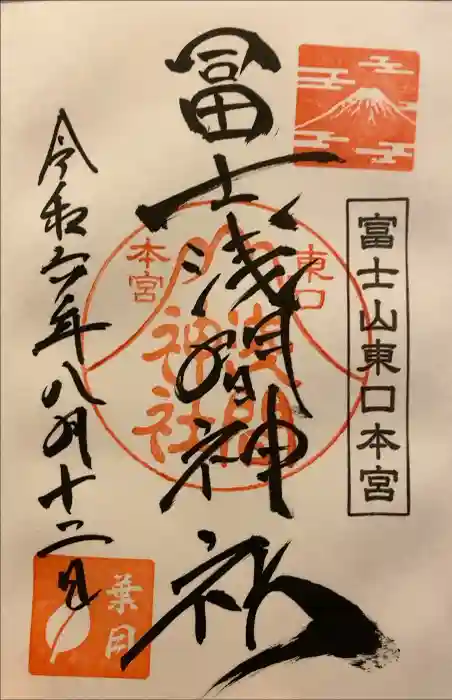 富士山東口本宮
冨士浅間神社
東口
本宮
浅間
神社
令和六年八月十二日
葉月